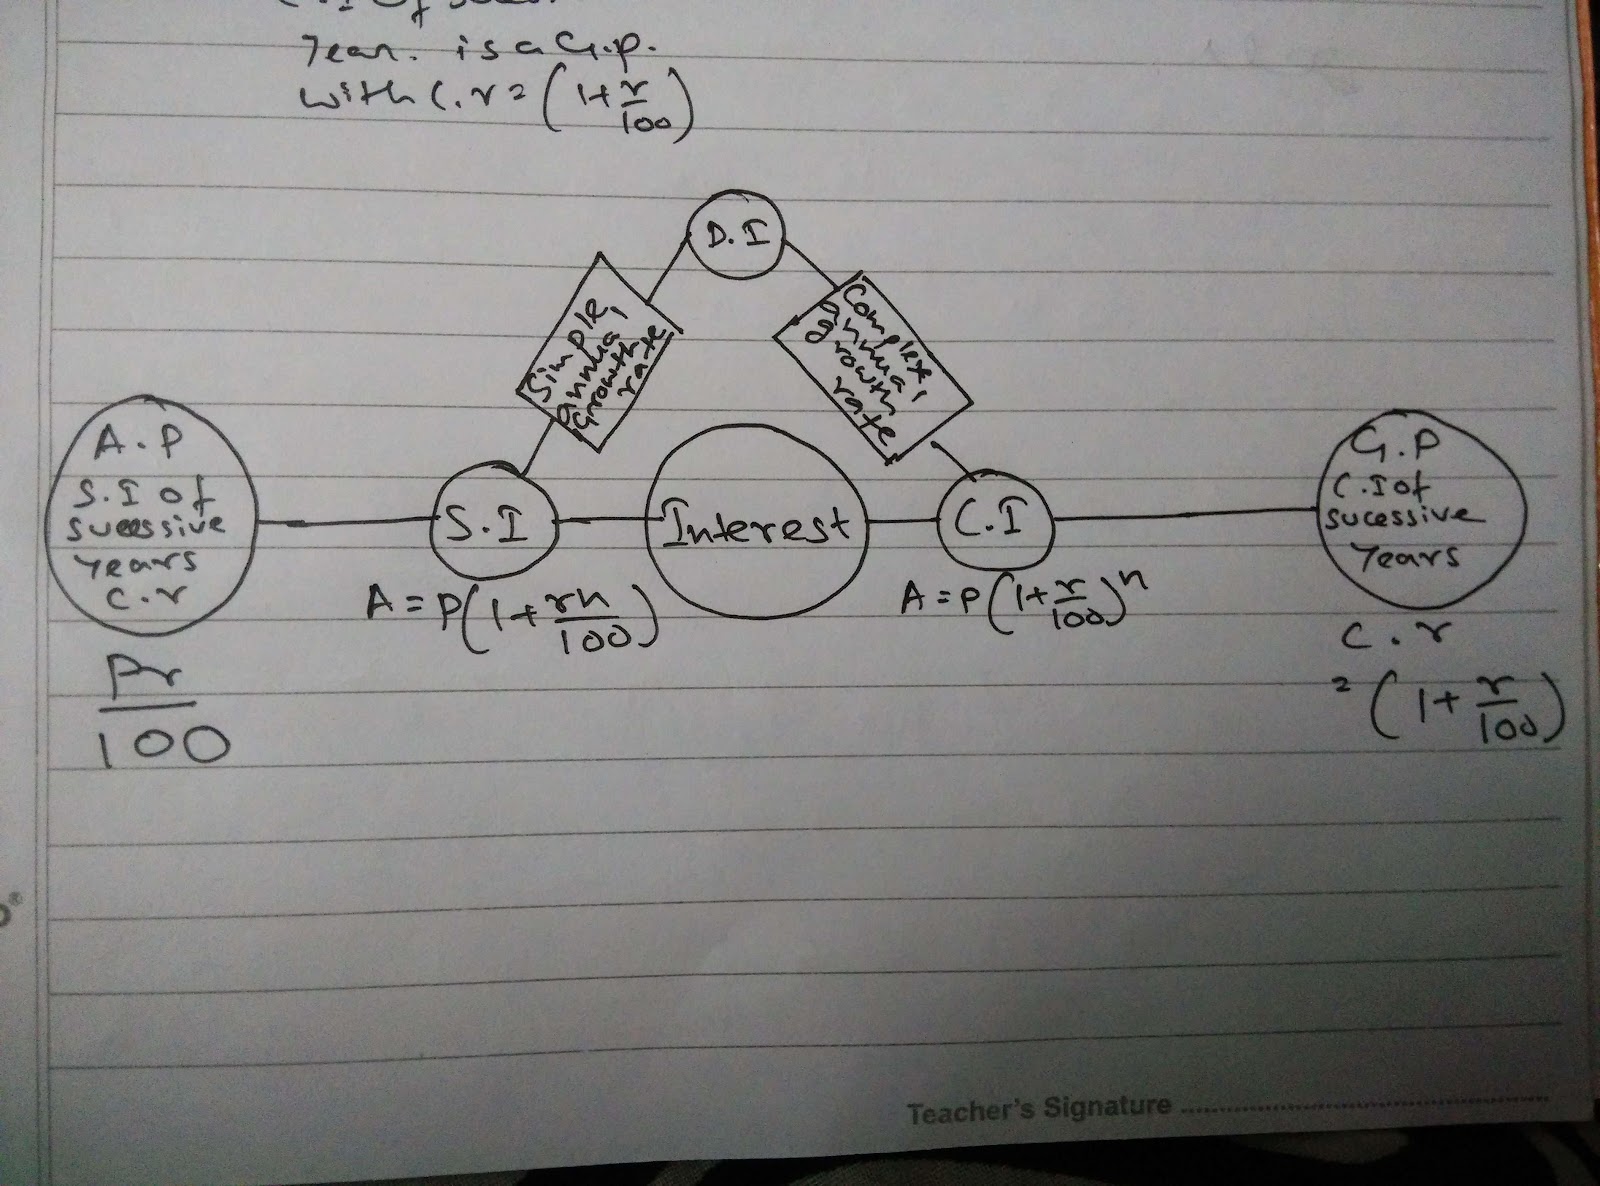 Year. is a G.p.
with C.r = (1+r/100)
D.I
Simple,
annua,
Growth
rate
Complex,
annua,
growth
rate
A.P
S.I of
sucessive
years
C.r
Pr/100
S.I
A = P(1+rn/100)
Interest
C.I
A = P(1+r/100)^n
G.P
C.I of
sucessive
Years
C.r
= (1+r/100)
Teacher's Signature